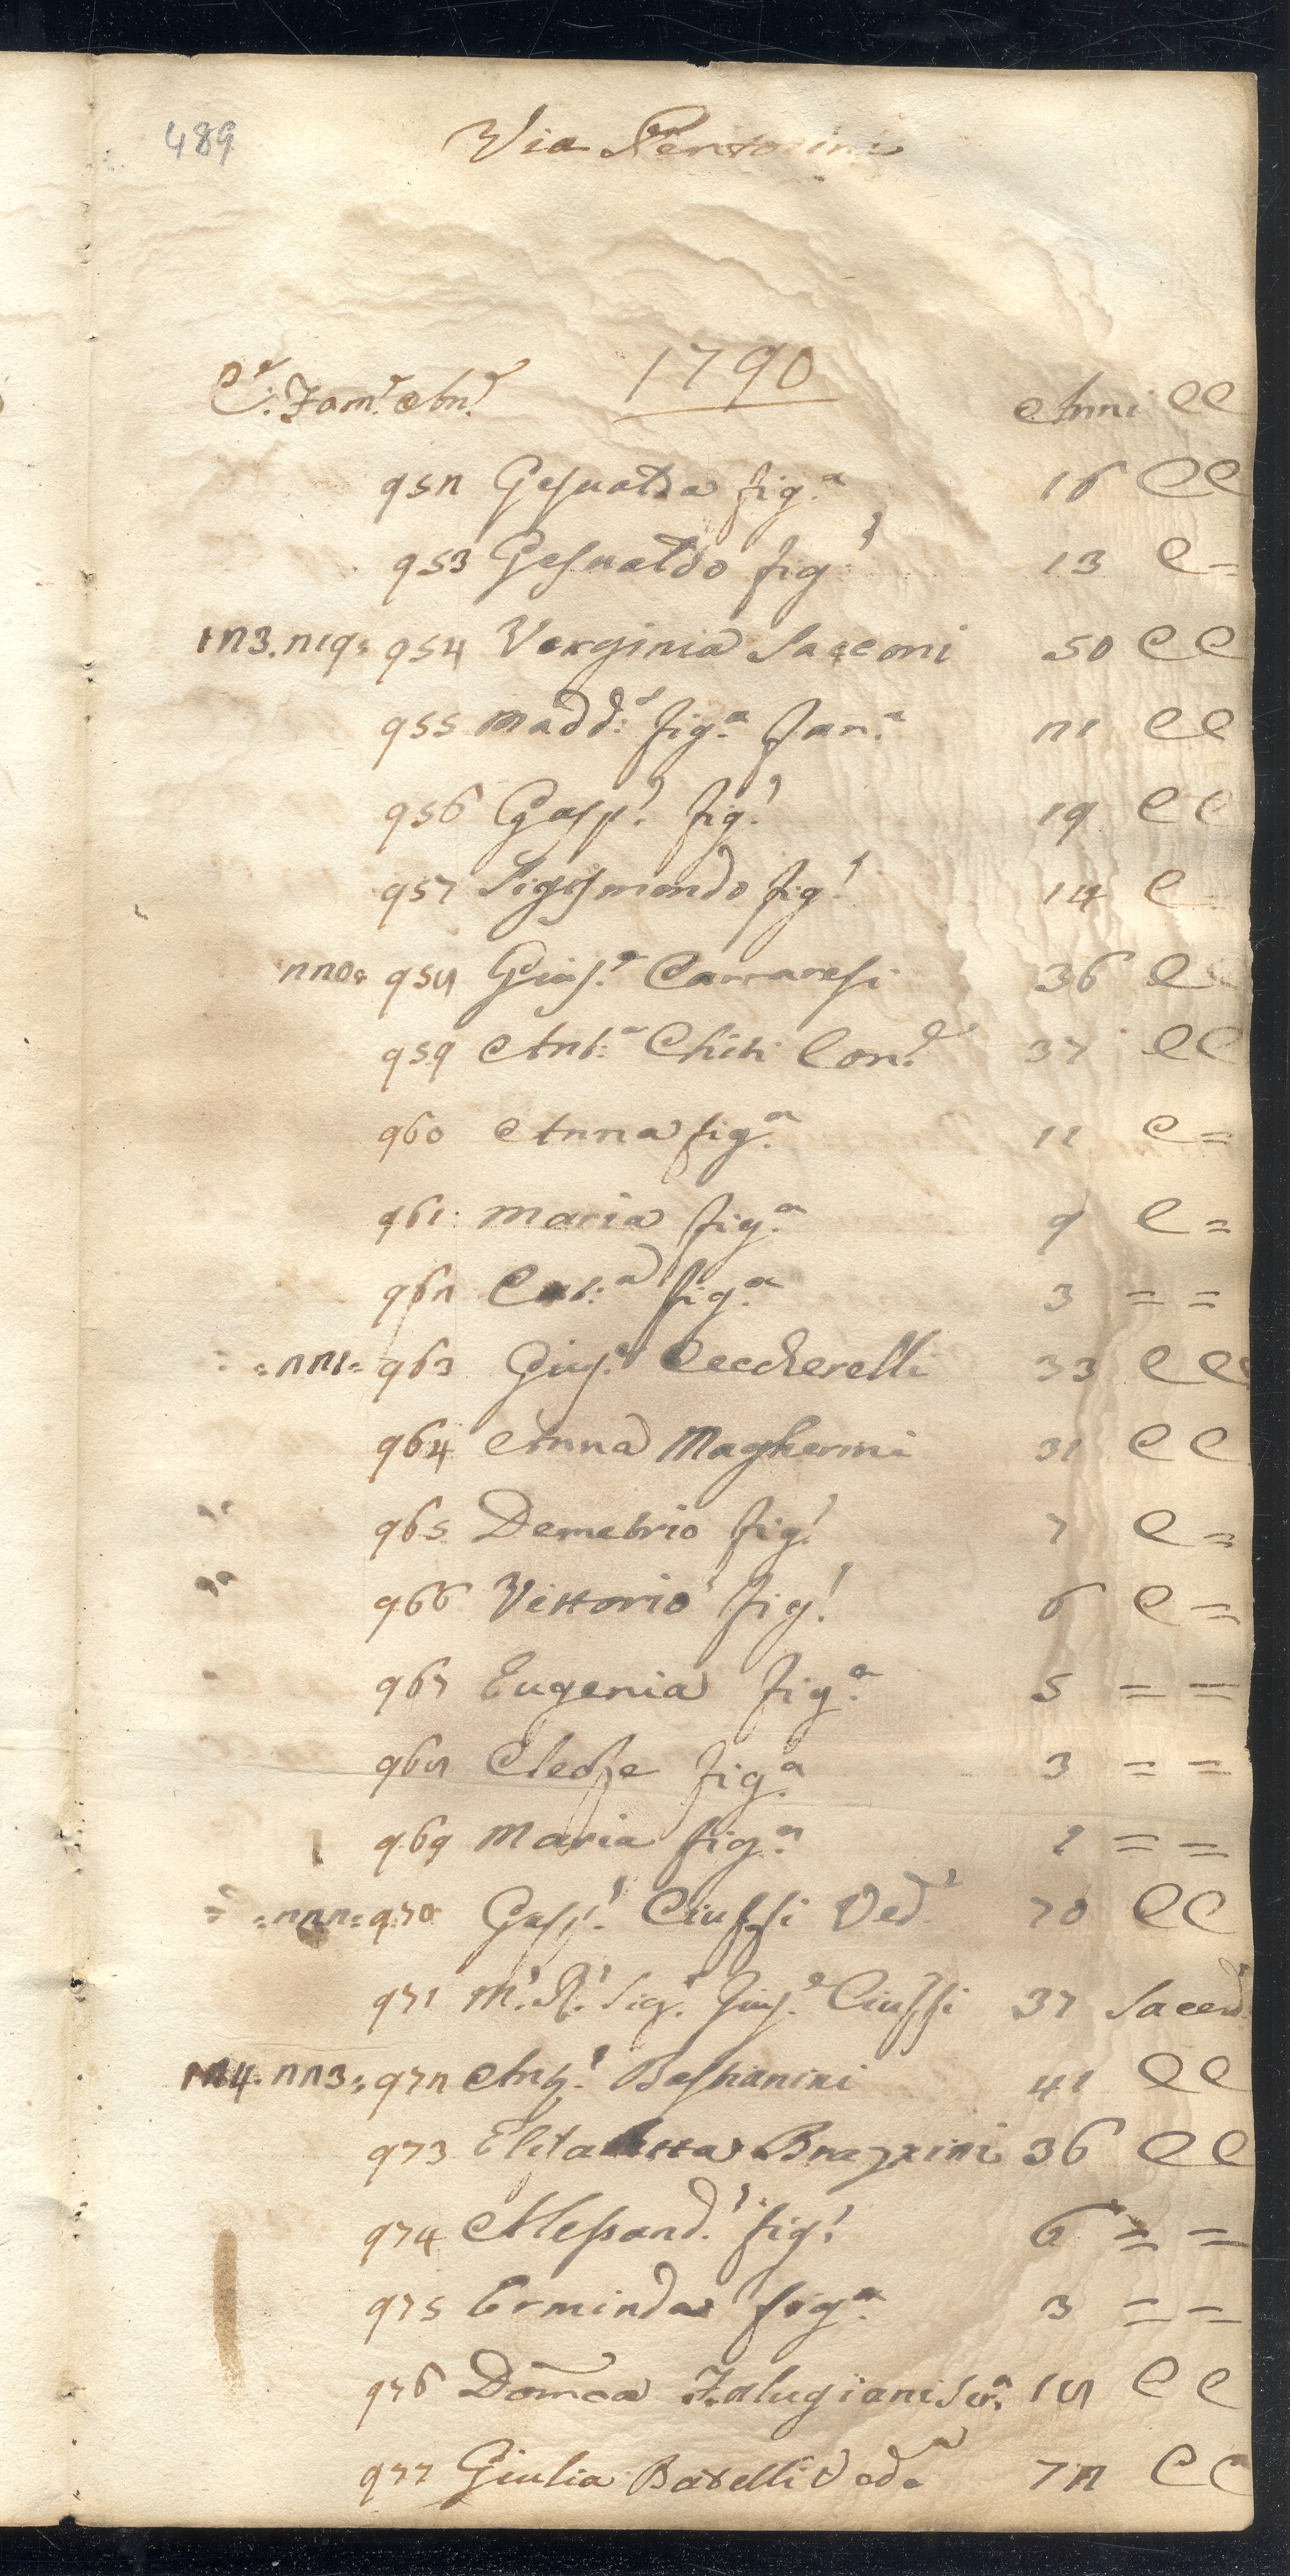 489
Via Pentolini
1790
C.e Fam.e An.e Anni CC
952 Gesualda fig.a 16 CC
953 Gesualdo fig.o 13 C=
123.219= 954 Verginia Sacconi 50 CC
955 Madd.a fig.a Fan.a 21 CC
956 Gasp.o fig.o 19 CC
957 Sigismondo fig.o 14 C
220= 958 Gius.e Carraresi 36 C
959 Ant.a Chiti Con.e 37 CC
960 Anna fig.a 11 C=
961 Maria fig.a 9 C=
962 Cat.a fig.a 3 ==
=221= 963 Gius.e Ceccherelli 33 CC
964 Anna Magherini 31 CC
965 Demetrio fig.o 7 C=
966 Vittorio fig.o 6 C=
967 Eugenia fig.a 5 ==
968 Cleofe fig.a 3 ==
969 Maria fig.a 1 ==
=222= 970 Gasp.o Ciuffi Ved.o 70 CC
971 M.o R.o Sig.e Gius.e Ciuffi 37 Sacerd.
124.223= 972 Ant.o Bastianini 41 CC
973 Elisabetta Brazzini 36 CC
974 Alessand.o fig.o 6 ==
975 Erminda fig.a 3 ==
976 Dom.ca Falugiani Ser.a 18 CC
977 Giulia Batelli Ved.a 72 CC